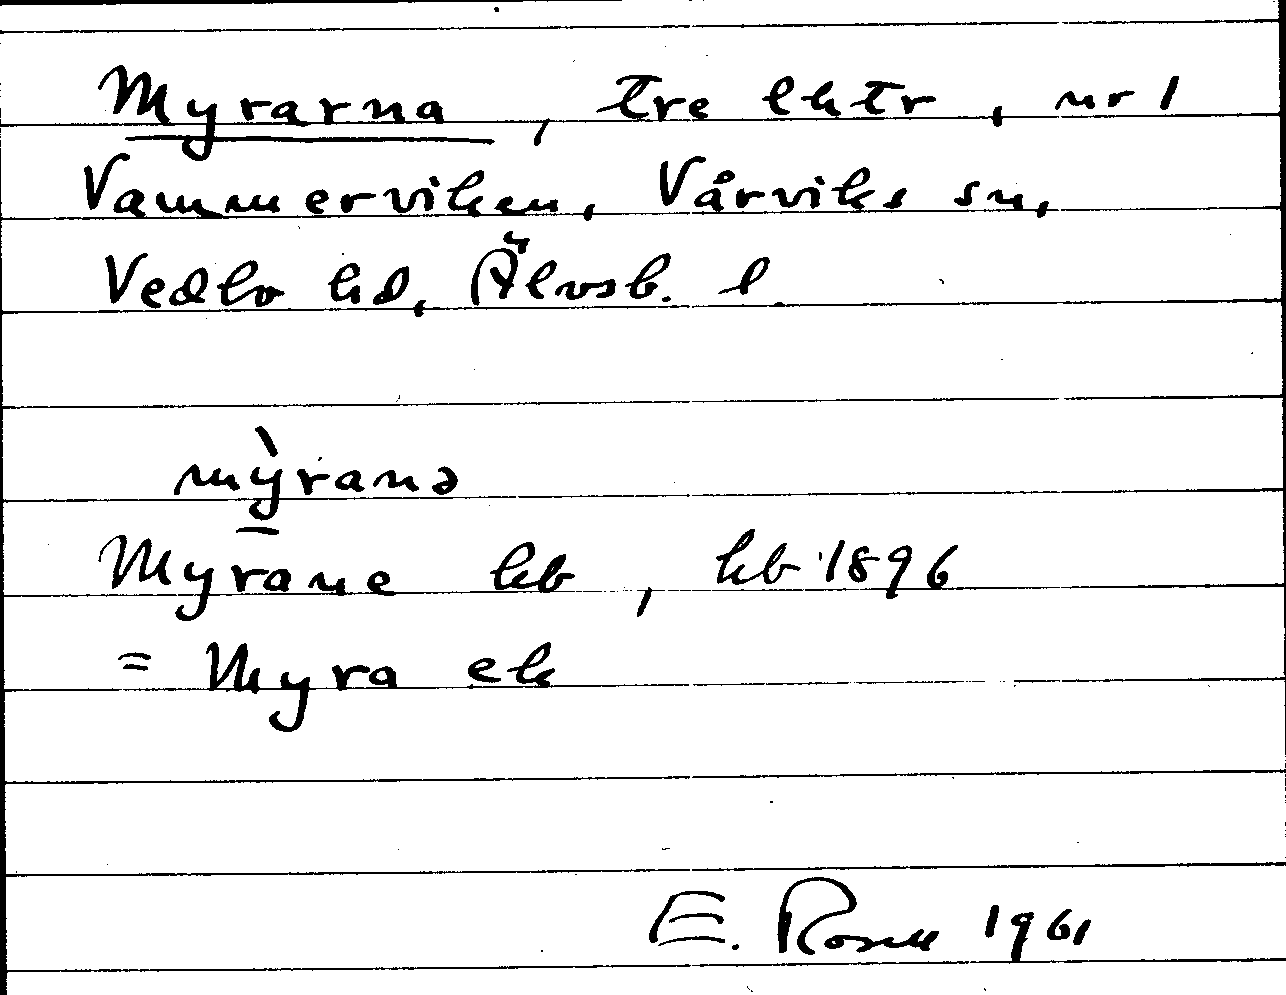 Myrarna, tre lhtr, nr 1
Vammerviken, Vårviks sn,
Vedbo hd, Älvsb. l
mỳranə
Myrane kb, hb 1896
= Myra ek
E. Rosell 1961